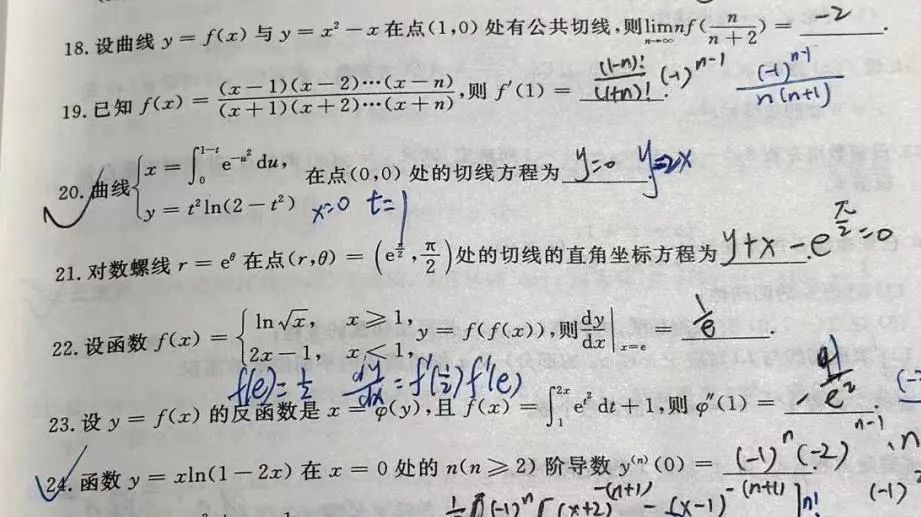 18. 设曲线 y = f(x) 与 y = x² − x 在点(1,0) 处有公共切线,则 lim_{n→∞} nf(n/(n+2)) = −2.
19. 已知 f(x) = (x−1)(x−2)⋯(x−n)/(x+1)(x+2)⋯(x+n), 则 f′(1) = (1−n)!/(1+n)! · (−1)^{n−1} (−1)^{n−1}/n(n+1)
20. 曲线 { x = ∫_0^{1−t} e^{−u²} du, y = t² ln(2 − t²) 在点(0,0) 处的切线方程为 y=0 y=2x
x=0 t=1
21. 对数螺线 r = e^θ 在点(r,θ) = (e^{π/2}, π/2) 处的切线的直角坐标方程为 y+x−e^{π/2}=0
22. 设函数 f(x) = { ln√x, x ≥ 1, 2x − 1, x < 1, y = f(f(x)), 则 dy/dx |_{x=e} = 1/e.
f(e)=1/2 dy/dx = f′(1/2) f′(e)
23. 设 y = f(x) 的反函数是 x = φ(y), 且 f(x) = ∫_1^{2x} e^{t²} dt + 1, 则 φ″(1) = − /e².
24. 函数 y = xln(1 − 2x) 在 x = 0 处的 n(n ≥ 2) 阶导数 y^{(n)}(0) = (−1)^n (−2)^{n−1} · n
(−1)^n [(x+2)^{−(n+1)} − (x−1)^{−(n+1)}] n!